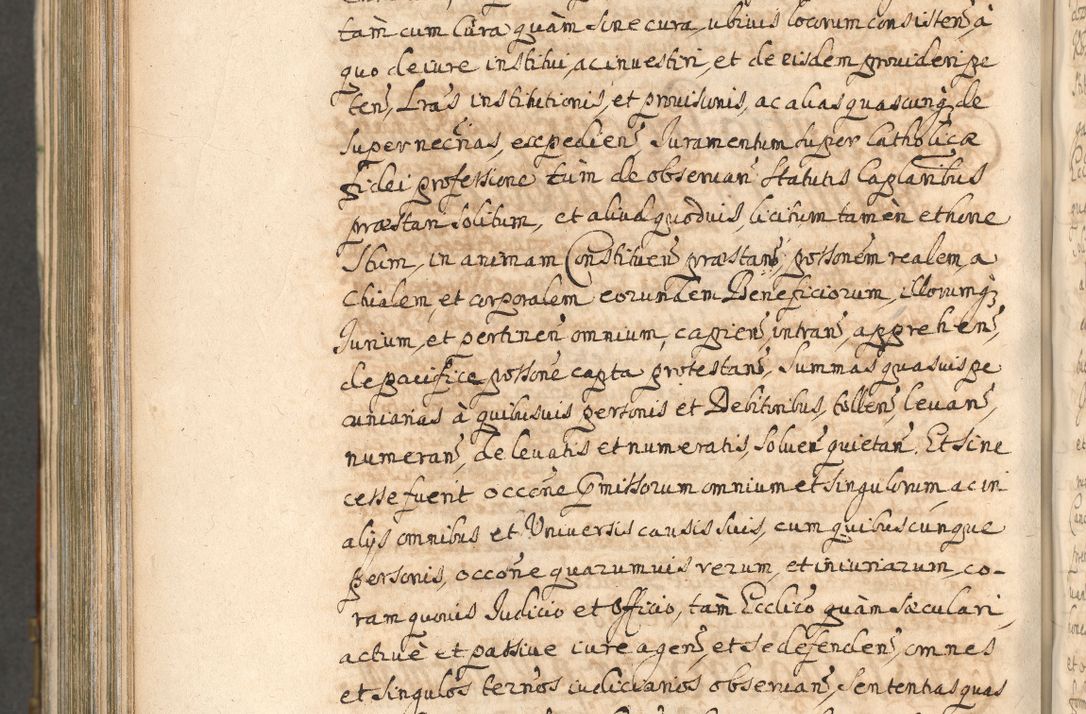 tam cum Cura quàm sine cura, ubivis locorum consisten̄ à
quo de iure institui, ac investiri, et de eisdem provideri pe
ten̄, Lrãs institutionis, et provisionis, ac alias quascunq; de
super necr̃ias, expedien̄ Juramentum super Catholicæ
fidei professione tùm de observan̄ statutis Caplaribus
præstan solitum, et aliud quodvis, licitum tamèn et hone
stum, in animam Constituen̄ præstan̄, possonem̃ realem, a
ctualem, et corporalem eorundem Beneficiorum, illorumq;
Jurium, et pertinen̄ omnium, capien̄, intran̄, apprehen̄,
de pacifice possone capta protestan̄, Summas quasvis pe
cuniarias à quibusvis personis et Debitoribus, tollen̄, levan̄,
numeran̄, de levatis et numeratis, solven̄ quietan̄. Et si ne
cesse fuerit occone p̃missorum omnium et singulorum, ac in
alijs omnibus et Universis causis suis, cum quibuscunque
personis, occone quarumvis rerum, et iniuriarum, co-
ram quovis Judicio et Officio, tàm Ecclico quàm sæculari
activè et passive iure agen̄, et se defenden̄, omnes
et singulos ternos iudiciarios observan̄, sententias quas